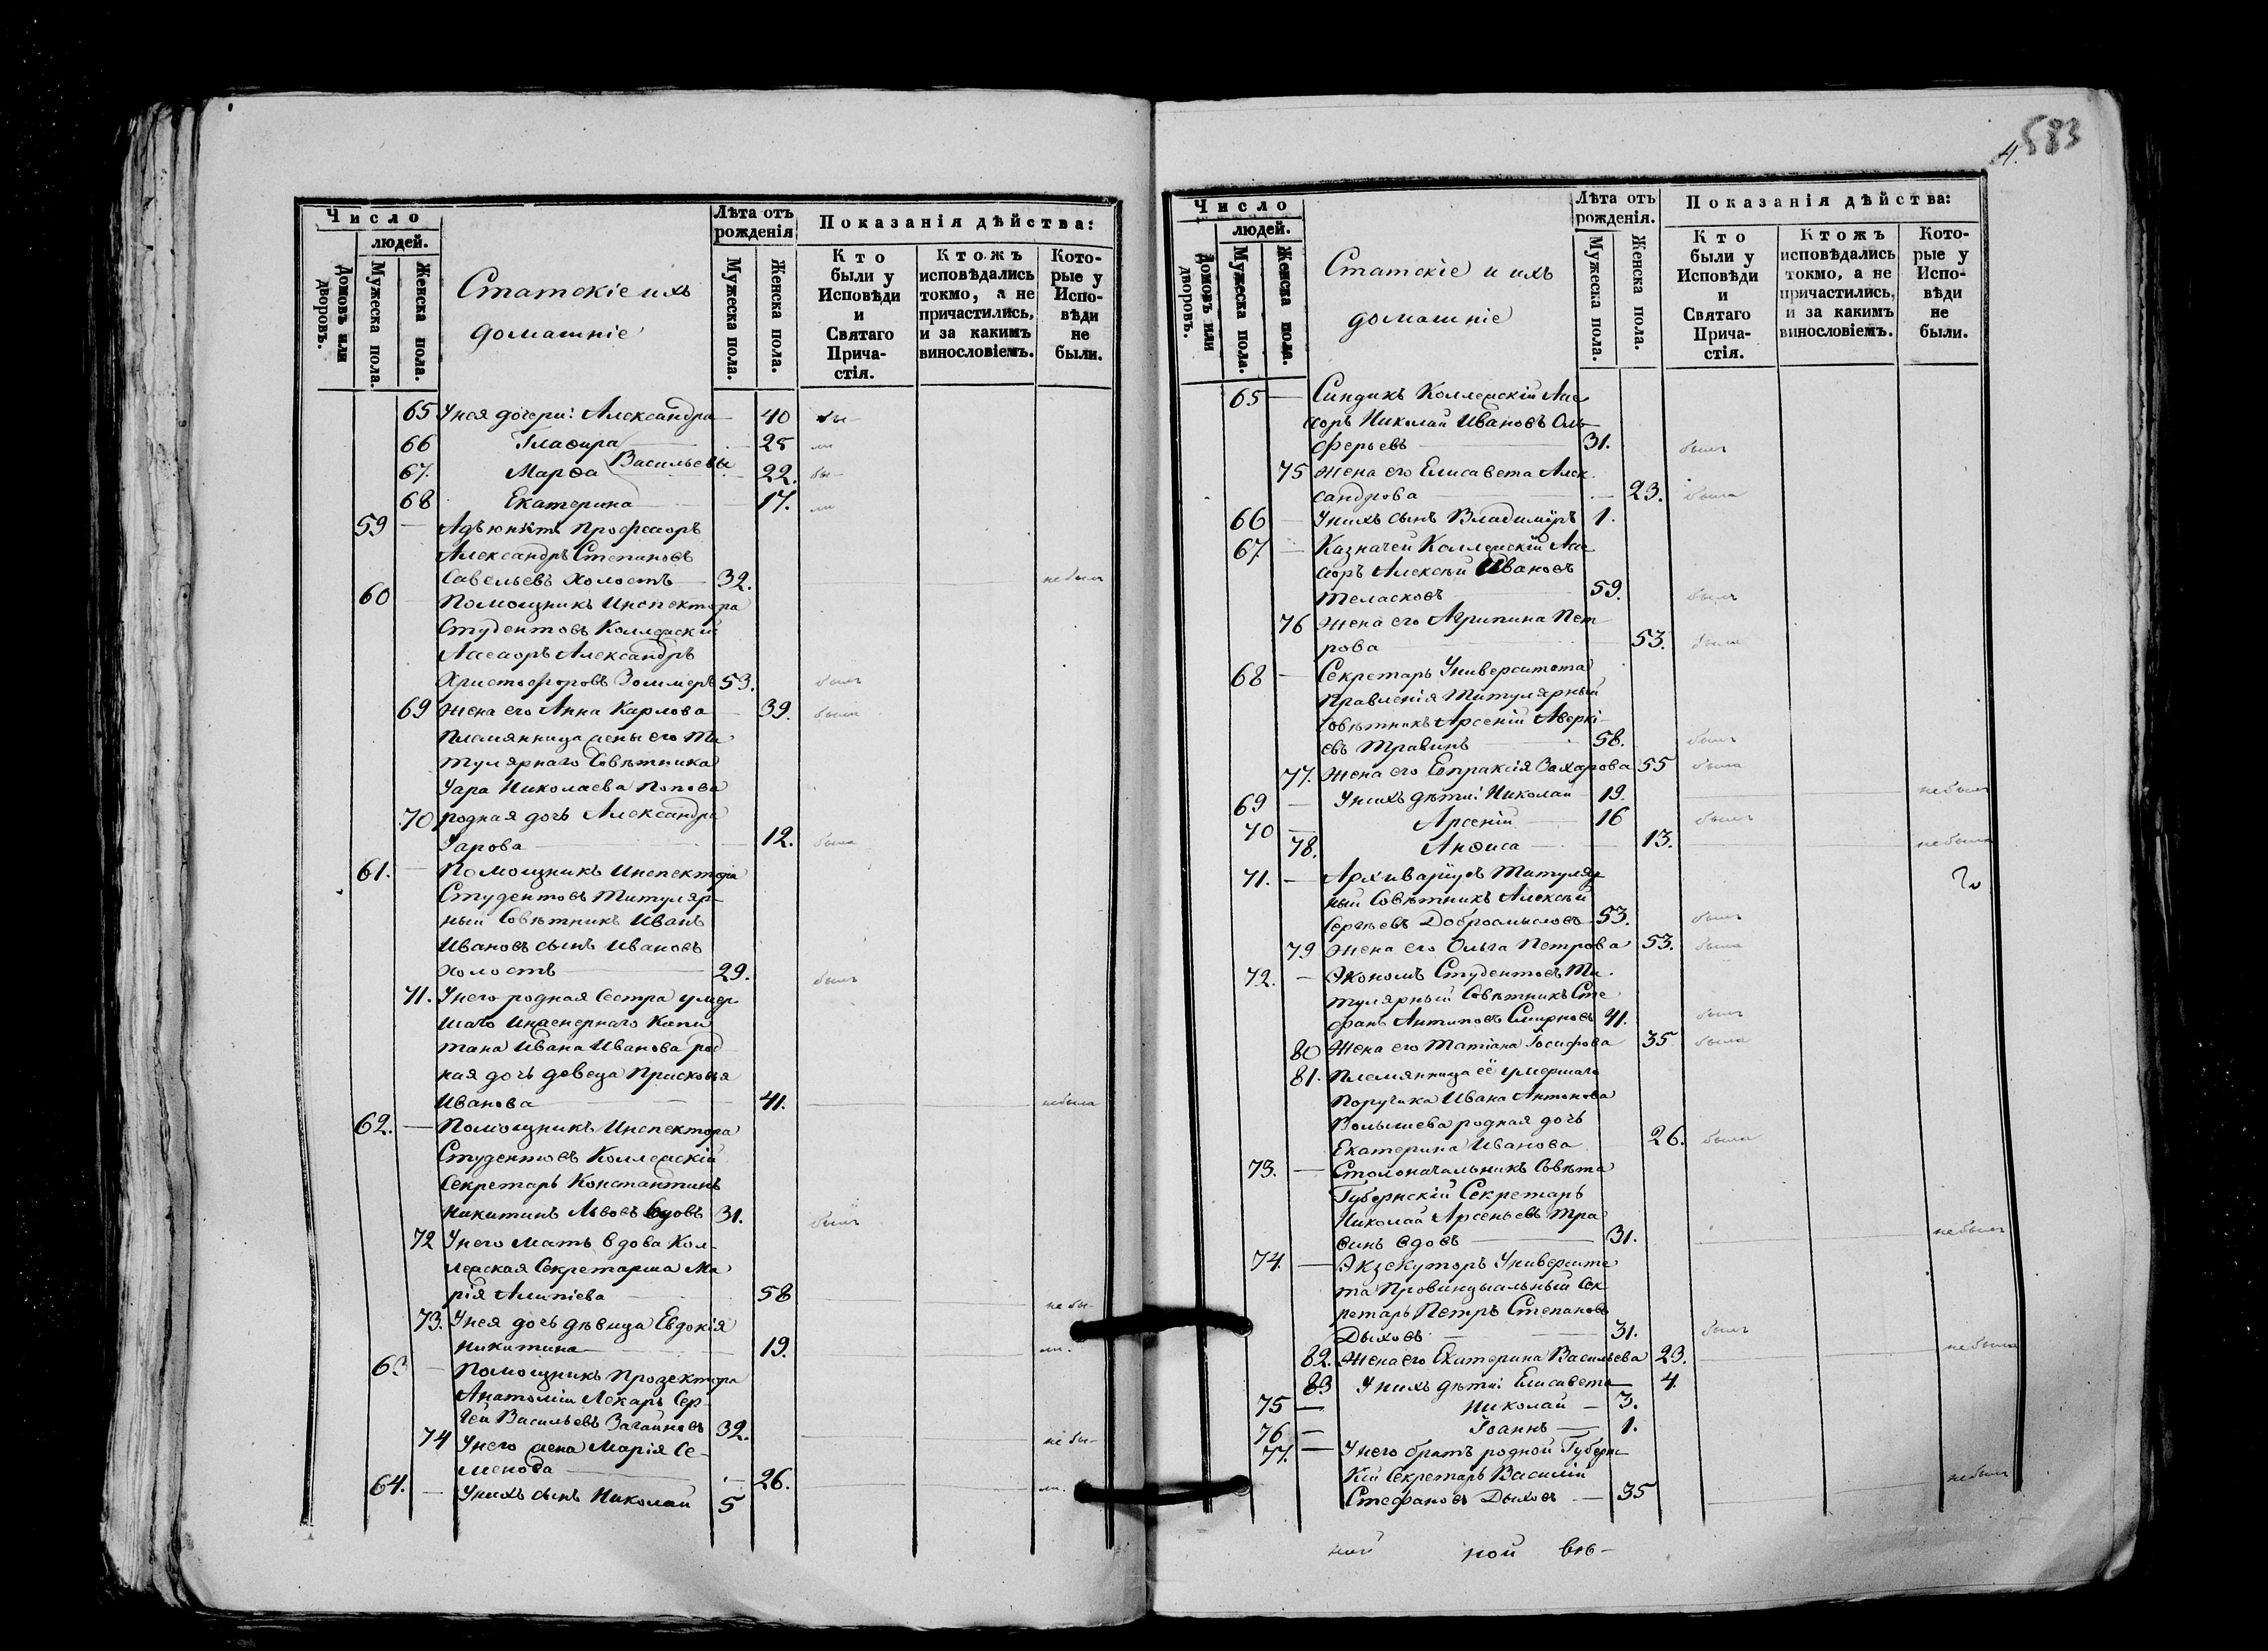 4. 583
Число
людей.
Домовъ или дворовъ.
Мужеска пола.
Женска пола.
Статскіе и ихъ
домашніе
Лѣта отъ
рожденія
Мужеска пола.
Женска пола.
Показанія дѣйства:
Кто
были у
Исповѣди
и
Святаго
Прича-
стія.
Ктожъ
исповѣдались
токмо, а не
причастились,
и за какимъ
винословіемъ.
Кото-
рые у
Испо-
вѣди
не
были.
65 У нея дочери: Александра — 40 бы-
66 Глафира — 25
Васильевы
67. Марѳа — 22. бы-
68 Екатерина — 17.
59 — Адъюнктъ Профессоръ
Александръ Степановъ
Савельевъ холостъ — 32. не былъ
60 — Помощникъ Инспектора
Студентовъ Коллежскій
Ассесоръ Александръ
Христофоровъ Зоммеръ 53. былъ
69 Жена его Анна Карлова — 39. была
Племянница жены его Ти
тулярнаго Совѣтника
Уара Николаева Попова
70 родная дочь Александра
Уарова — 12. была
61. — Помощникъ Инспектора
Студентовъ Титуляр-
ный Совѣтникъ Иванъ
Ивановъ сынъ Ивановъ
холостъ — 29. былъ
71. У него родная Сестра умер
шаго Инженернаго Капи
тана Ивана Иванова род
ная дочь девица Прасковья
Иванова — 41. не была
62. — Помощникъ Инспектора
Студентовъ Коллежскій
Секретарь Константинъ
Никитинъ Львовъ вдовъ 31. былъ
72 У него Мать вдова Кол-
лежская Секретарша Ма
рія Алипіева — 58 не бы-
73. У нея дочь дѣвица Евдокія
Никитина — 19.
63 — Помощникъ Прозектора
Анатоміи Лекарь Сер-
гей Васильевъ Загайновъ 32. не бы-
74 У него жена Марія Се-
менова — 26.
64. — У нихъ сынъ Николай 5
Число
людей.
Домовъ или дворовъ.
Мужеска пола.
Женска пола.
Статскіе и ихъ
домашніе
Лѣта отъ
рожденія.
Мужеска пола.
Женска пола.
Показанія дѣйства:
Кто
были у
Исповѣди
и
Святаго
Прича-
стія.
Ктожъ
исповѣдались
токмо, а не
причастились,
и за какимъ
винословіемъ.
Кото-
рые у
Испо-
вѣди
не
были.
65 — Синдикъ Коллежскій Асе
соръ Николай Ивановъ Оль-
ферьевъ — 31. былъ
75 Жена его Елисавета Алек
сандрова — 23. была
66 — У нихъ сынъ Владиміръ 1.
67 — Казначей Коллежскій Асе
соръ Алексѣй Ивановъ
— 59. былъ
76 Жена его Агрипина Пет
рова — 53. была
68 — Секретарь Университета
Правленія Титулярный
Совѣтникъ Арсеній Аверкі-
евъ Травинъ — 58. былъ
77. Жена его Евпраксія Захарова 55 была
69 — У нихъ дѣти: Николай 19. не былъ
70 — Арсеній — 16 былъ
78. Анѳиса — 13. не была
71. — Архиваріусъ Титуляр
ный Совѣтникъ Алексѣй
Сергѣевъ Добросмысловъ 53. былъ
79 Жена его Ольга Петрова 53. была
72. — Экономъ Студентовъ Ти
тулярный Совѣтникъ Сте
фанъ Антиповъ Смирновъ 41. былъ
80 Жена его Татіана Іосифова 35 была
81. Племянница её умершаго
Поручика Ивана Антонова
родная дочь
Екатерина Иванова 26. была
73. — Столоначальникъ Совѣта
Губернскій Секретарь
Николай Арсеньевъ Тра
винъ вдовъ — 31. не былъ
74. — Экзекуторъ Университе
та Провинціальный Сек
ретарь Петръ Степановъ
Дыховъ — 31. былъ
82. Жена его Екатерина Васильева 23. не была
83 У нихъ дѣти: Елисавета 4.
75 — Николай — 3.
76 — Іоаннъ — 1.
77. — У него братъ родной Губернс
кій Секретарь Василій
Стефановъ Дыховъ — 35 не былъ
ной вѣ-